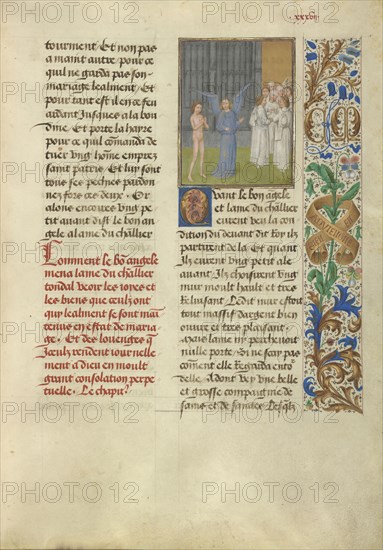 xxxvii
tourment Et non pas
a maint autre pour ce
quil ne garda pas son
mariage lealment Et
pour tant est il en ce feu
ardant Jusques a la bou
dine Et porte la hayre
pour ce quil comanda de
tuer vng home emprez
saint patris Et luy sont
tous ses pechies pardon
nez fors ces deux Or
alons encoires vng pe
tit auant dist le bon an
gele a lame du chllier
Comment le bon angele
mena lame du chlier
tondal veoir les ioyes et
les biens que ceulx ont
qui lealment se sont main
tenus en estat de maria
ge Et des louenges q
Iceulx rendent tout nelle
ment a dieu en moult
grant consolation perpe
tuelle Le chapit
Quant le bon angele
et lame du chlier
eurent veu la con
dition du deuant dit Roy ilz
partirent de la Et quant
Ilz eurent vng petit ale
auant Ilz choisirent vng
mur moult hault et tres
Reluisant Ledit mur estoit
tout massif dargent bien
ouure et tres plaisant
Mais lame ny percheuoit
nulle porte Si ne scay pas
coment elle Regarda ento
delle Adont vey vne belle
et grosse compaignie de
sains et de saintes Lesqlz
CM